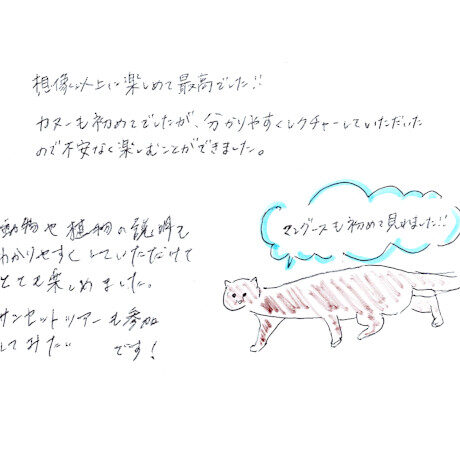 想像以上に楽しめて最高でした!!
カヌーも初めてでしたが、分かりやすくレクチャーしていただいた
ので不安なく楽しむことができました。
マングースも初めて見れました!!
動物や植物の説明も
わかりやすくしていただけて
とても楽しめました。
サンセットツアーも参加
してみたいです!